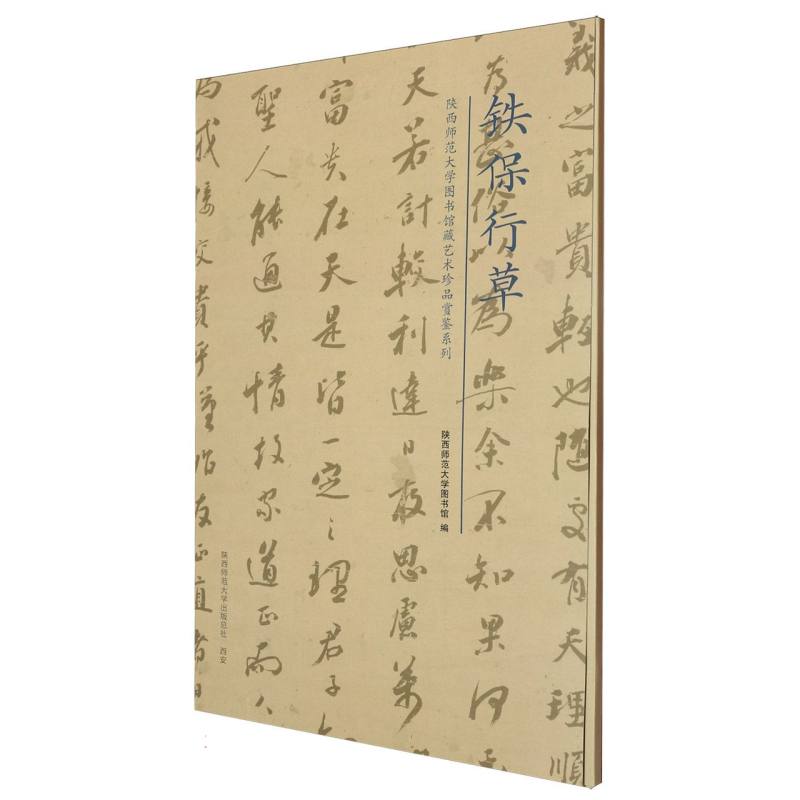 铁保行草
陕西师范大学图书馆藏艺术珍品赏鉴系列
陕西师范大学图书馆 编
陕西师范大学出版总社 西安
義之富貴輕也随處有天理順
為 為柴余不知果何
天若計較利達日夜思慮萬
富贵在天是皆一定之理君子
聖人能通其情故家道正而人
為我接交貴乎
友正直者日